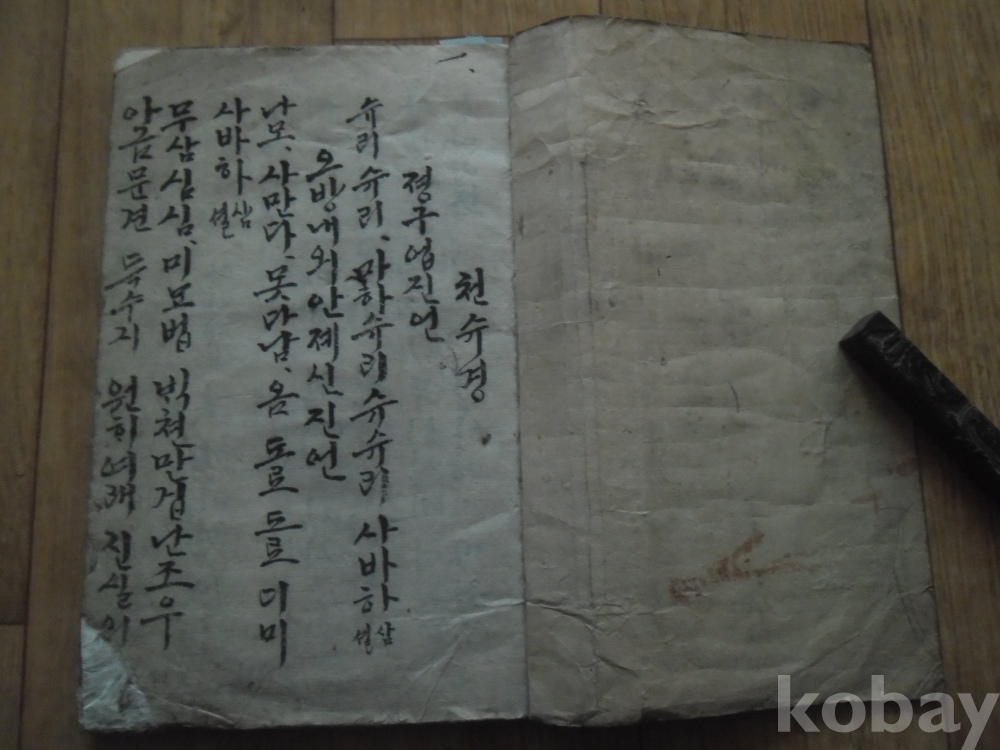 천슈경
졍구업진언
슈리슈리, 마하슈리슈슈리 사바하 삼셜
오방내외안졔신진언
나모, 사만다, 못다남, 옴 도로 도로 디미
사바하 삼셜
무삼심심, 미묘법 빅쳔만겁난조우
아금문견 득수지 원히여래 진실이
kobay